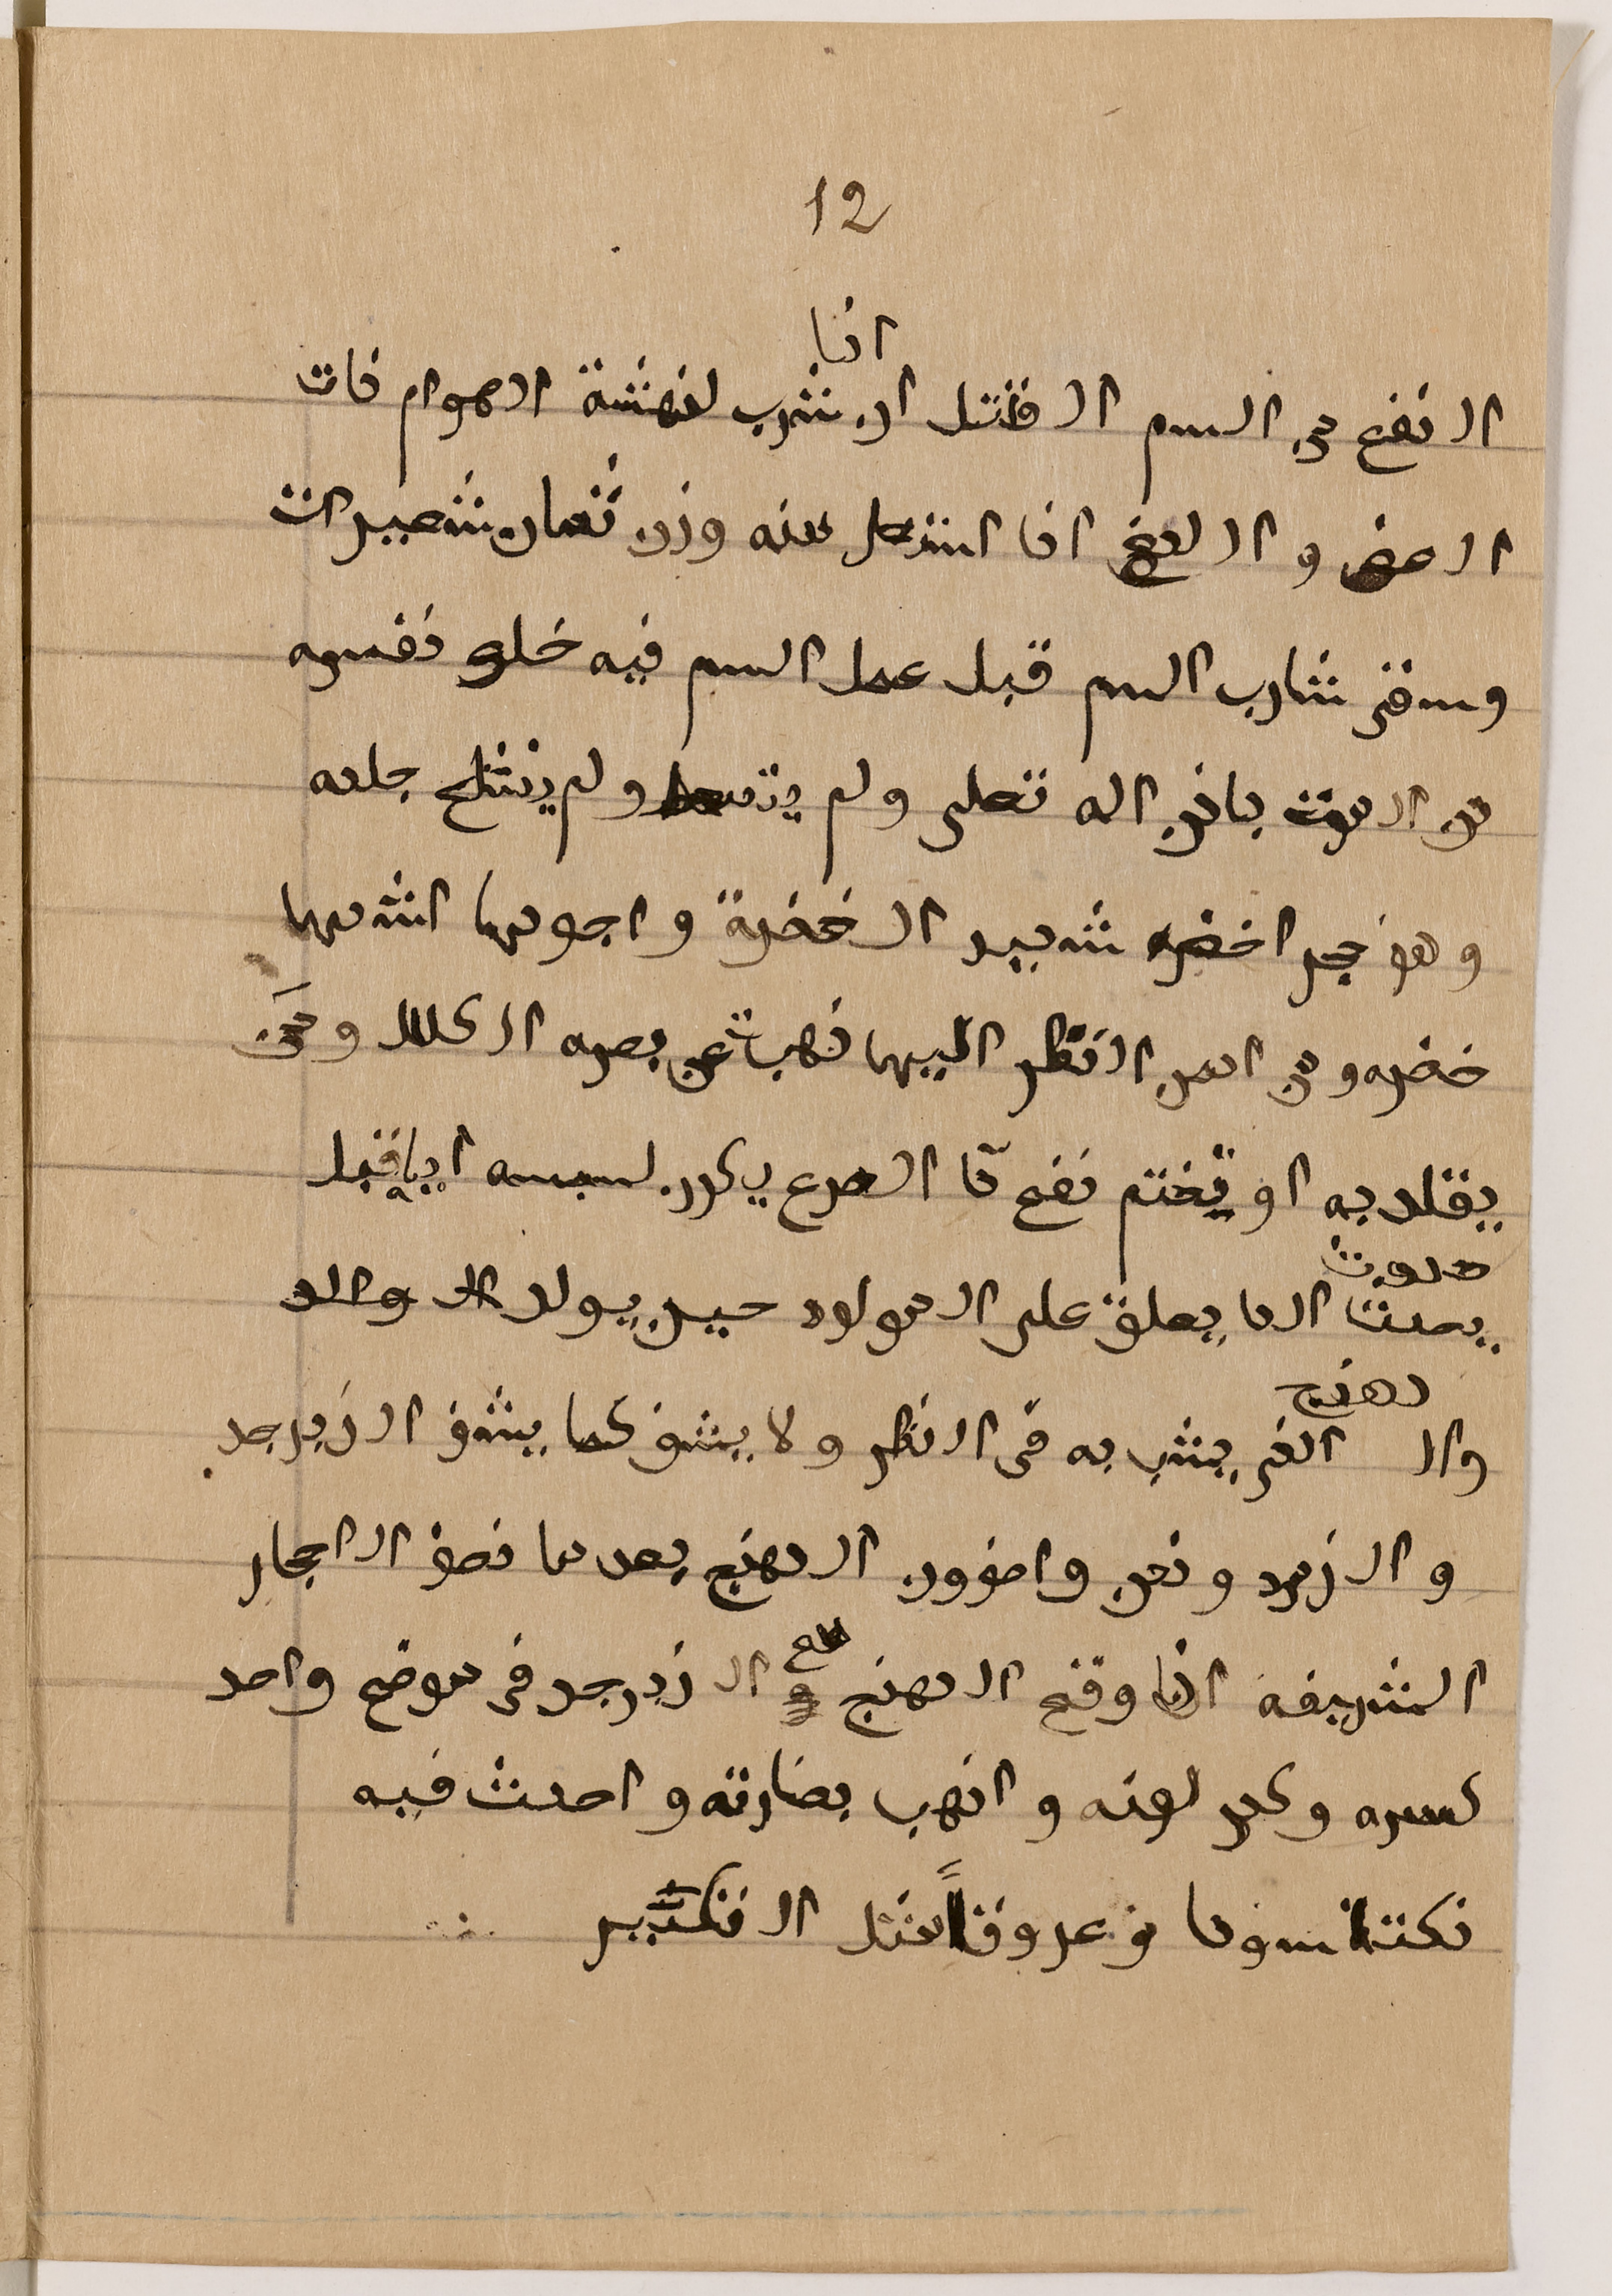 12
اذا
النفع من السم القاتل ان شرب لنهشة الهوام ذات
العض و اللدغ اذا استحل منه وزن ثمان شعيرات
وسقى شارب السم قبل عمل السم فيه خلص نفسه
من الموت باذن اله تعلى ولم ينسلخ جلده
وهو حجر اخضر شديد الخضرة و اجودها اشدها
خضره و من ادمن النظر اليها ذهب عن بصره الكلال و من
يقلد به او تختم نفع من الصرع يكون لبسه اياه قبل
حدوث
يعلق على المولود حين يولد
دهنج
وال الذى يشب به فى النظر و لا يشف كما يشف الزبرجد
و الزمرد و نحن واصفون الدهنج بعد ما نصف الاحجار
الشريفه اذا وقع الدهنج مع الزبرجد فى موضع واحد
كسره و كدر لونه و اذهب بضارته و احدث فيه
نكتا سودا و عروقا مثل